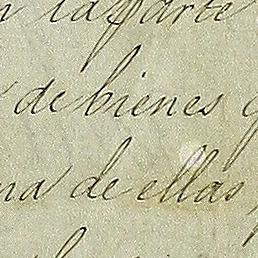 la parte
de bienes
na de ellas